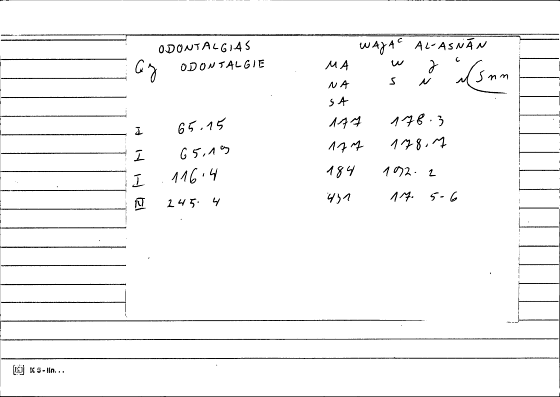 ODONTALGIAS WAJAᶜ AL-ASNĀN
Gy ODONTALGIE MA W J ᶜ
NA S N N (Snn
SA
I 65.15 177 178.3
I 65.19 177 178.7
I 116.4 184 192.2
IV 245.4 491 17. 5-6